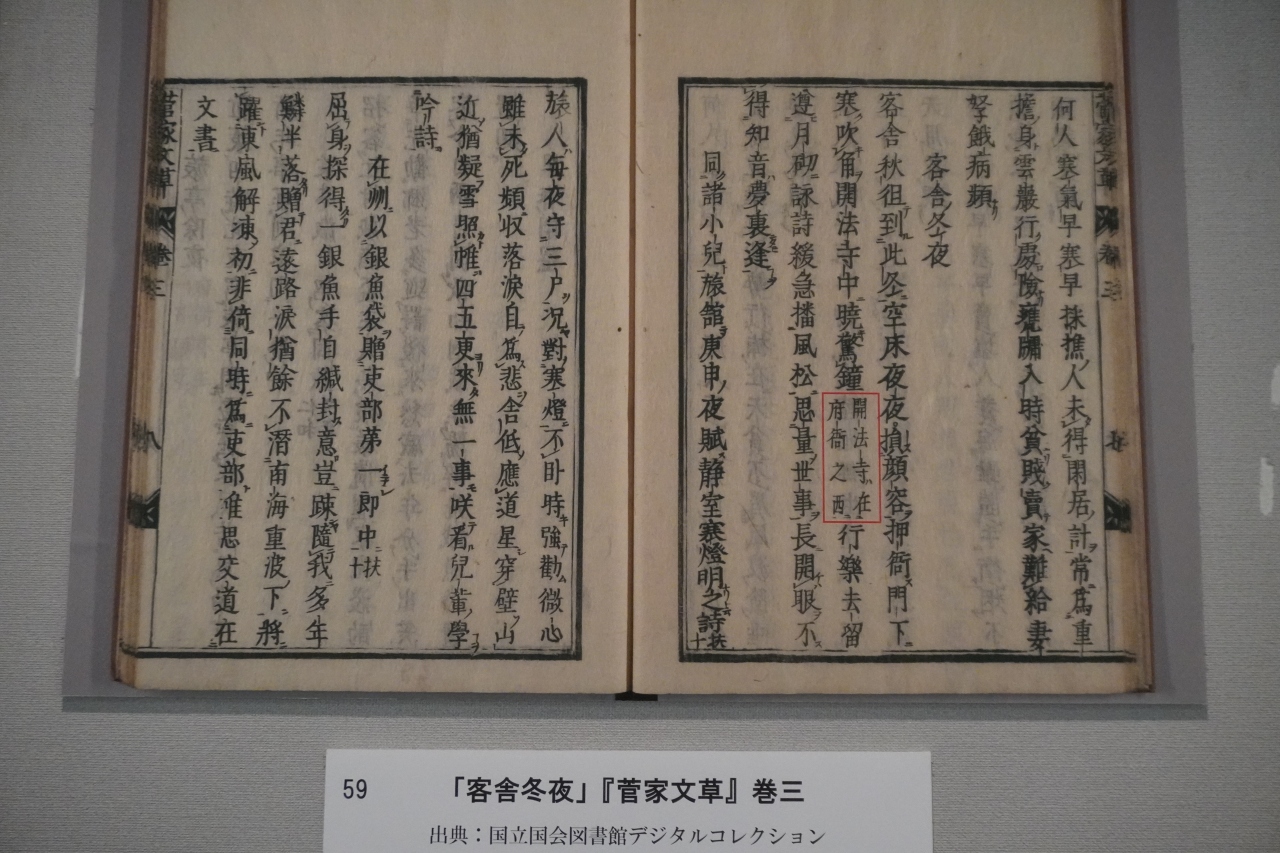 何人寒氣早寒早採樵人未得閑居計常爲重
擔身雲巖行處險甕牖入時貧賤賣家難給妻
孥餓病頻
客舎冬夜
客舎秋徂到此冬空床夜夜損顔容押衙門下
寒吹角開法寺中曉驚鐘開法寺在府衙之西行樂去留
遵月砌詠詩緩急播風松思量世事長開眼不
得知音夢裏逢
同諸小兒旅館庚申夜賦静室寒燈明之詩
旅人毎夜守三尸況對寒燈不臥時強勸微心
雖未死頻收落涙自爲悲舎低應道星穿壁山
近猶疑雪照帷四五更來無一事咲看兒輩學
吟詩
在州以銀魚袋贈吏部第一郎中
屈身探得一銀魚手自緘封意豈踈隨我多年
鱗半落贈君遠路涙猶餘不潛南海重波下將
躍東風解凍初非倚同時爲吏部唯思交道在
文書
菅家文草 巻三
八
59 「客舎冬夜」『菅家文草』巻三
出典：国立国会図書館デジタルコレクション